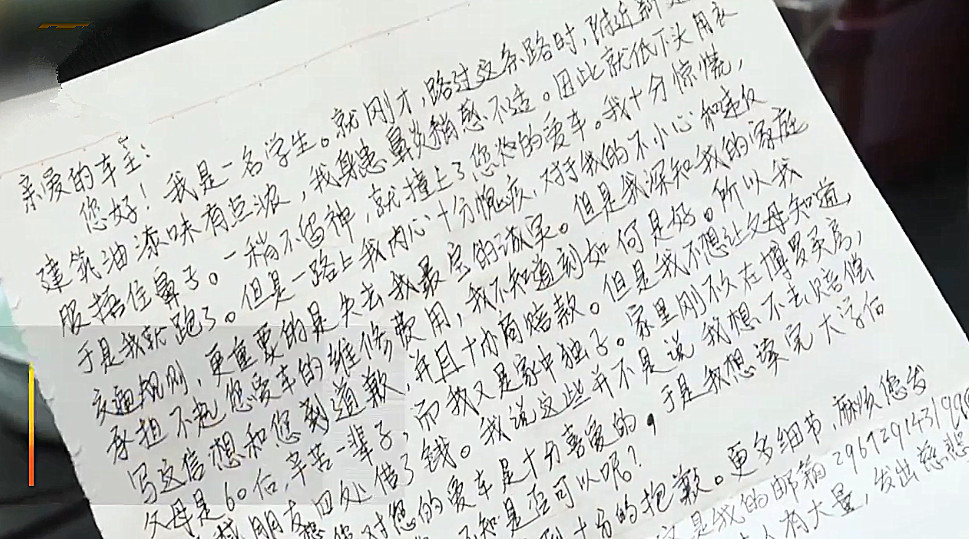 亲爱的车主：
您好！我是一名学生。就刚才，路过这条路时，附近新建
建筑油漆味有点浓，我身患鼻炎稍感不适。因此就低下头用衣
服捂住鼻子。一稍不留神，就撞上了您的爱车。我十分惊慌，
于是我就跑了。但是一路上我内心十分愧疚，对于我的不小心和违反
交通规则，更重要的是失去我最宝的诚实。但是我深知我的家庭
承担不起您爱车的维修费用，我不知道到如何是好。所以我
写这信想和您到道歉，并且十协商赔款。但是我不想让父母知道，
父母是60后，辛苦一辈子，而我又是家中独子。家里刚不久在博罗买房，
朋友四处借了钱。我说这些并不是说我想不去赔偿
您对您的爱车是十分喜爱的，于是我想读完大学后
不知是否可以呢？
到十分的抱歉。更多细节，麻烦您发
这是我的邮箱
人有大量，发出慈悲